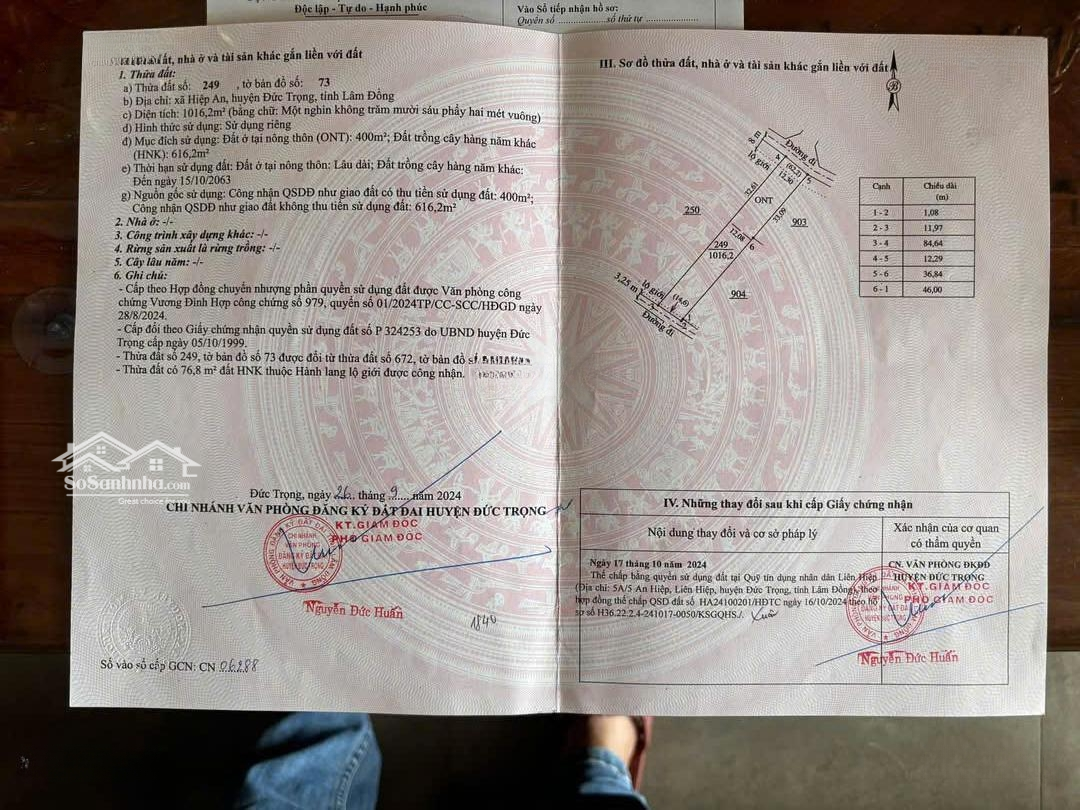 Độc lập - Tự do - Hạnh phúc
Vào Sổ tiếp nhận hồ sơ:
Quyển số ..................số thứ tự ......................
đất, nhà ở và tài sản khác gắn liền với đất
1. Thửa đất:
a) Thửa đất số: 249 , tờ bản đồ số: 73
b) Địa chỉ: xã Hiệp An, huyện Đức Trọng, tỉnh Lâm Đồng
c) Diện tích: 1016,2m² (bằng chữ: Một nghìn không trăm mười sáu phẩy hai mét vuông)
d) Hình thức sử dụng: Sử dụng riêng
đ) Mục đích sử dụng: Đất ở tại nông thôn (ONT): 400m²; Đất trồng cây hàng năm khác
(HNK): 616,2m²
e) Thời hạn sử dụng đất: Đất ở tại nông thôn: Lâu dài; Đất trồng cây hàng năm khác:
Đến ngày 15/10/2063
g) Nguồn gốc sử dụng: Công nhận QSDĐ như giao đất có thu tiền sử dụng đất: 400m²;
Công nhận QSDĐ như giao đất không thu tiền sử dụng đất: 616,2m²
2. Nhà ở: -/-
3. Công trình xây dựng khác: -/-
4. Rừng sản xuất là rừng trồng: -/-
5. Cây lâu năm: -/-
6. Ghi chú:
- Cấp theo Hợp đồng chuyển nhượng phần quyền sử dụng đất được Văn phòng công
chứng Vương Đình Hợp công chứng số 979, quyển số 01/2024TP/CC-SCC/HĐGD ngày
28/8/2024.
- Cấp đổi theo Giấy chứng nhận quyền sử dụng đất số P 324253 do UBND huyện Đức
Trọng cấp ngày 05/10/1999.
- Thửa đất số 249, tờ bản đồ số 73 được đổi từ thửa đất số 672, tờ bản đồ
- Thửa đất có 76,8 m² đất HNK thuộc Hành lang lộ giới được công nhận.
SoSanhnha.com
Great choice
Đức Trọng, ngày 26 tháng 9 năm 2024
CHI NHÁNH VĂN PHÒNG ĐĂNG KÝ ĐẤT ĐAI HUYỆN ĐỨC TRỌNG
KT.GIÁM ĐỐC
PHÓ GIÁM ĐỐC
CHI NHÁNH
VĂN PHÒNG
ĐĂNG KÝ ĐẤT ĐAI
HUYỆN ĐỨC TRỌNG
Nguyễn Đức Huấn
1840
Số vào sổ cấp GCN: CN 06288
III. Sơ đồ thửa đất, nhà ở và tài sản khác gắn liền với đất
B
8 m
Đường đi
lộ giới
4
(62,2)
12,30
5
32,61
ONT
33,09
250
903
12,08
6
249
1016,2
904
3,25 m
lộ giới
(14,6)
Đường đi
Cạnh Chiều dài
(m)
1 - 2 1,08
2 - 3 11,97
3 - 4 84,64
4 - 5 12,29
5 - 6 36,84
6 - 1 46,00
IV. Những thay đổi sau khi cấp Giấy chứng nhận
Nội dung thay đổi và cơ sở pháp lý
Xác nhận của cơ quan
có thẩm quyền
Ngày 17 tháng 10 năm 2024
Thế chấp bằng quyền sử dụng đất tại Quỹ tín dụng nhân dân Liên Hiệp
(Địa chỉ: 5A/5 An Hiệp, Liên Hiệp, huyện Đức Trọng, tỉnh Lâm Đồng), theo
hợp đồng thế chấp QSD đất số HA24100201/HĐTC ngày 16/10/2024 theo hồ
sơ số H36.22:2.4-241017-0050/KSGQHS./. Xuân
CN. VĂN PHÒNG ĐKĐĐ
HUYỆN ĐỨC TRỌNG
KT.GIÁM ĐỐC
PHÓ GIÁM ĐỐC
Nguyễn Đức Huấn